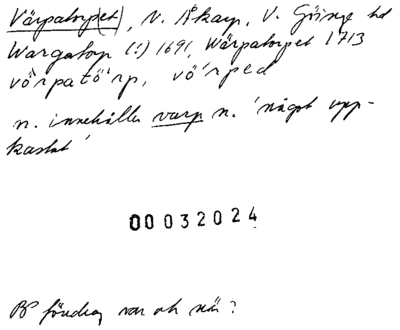 Värpatorpet(et), N. Åkarp, V. Göinge hd
Wargatorp (!) 1691, Wärpatorpet 1713
vö̀rpatö̀rp, vö̀rped
n. innehåller varp n. 'något upp-
kastat'
00032024
BP föredrag var och när?